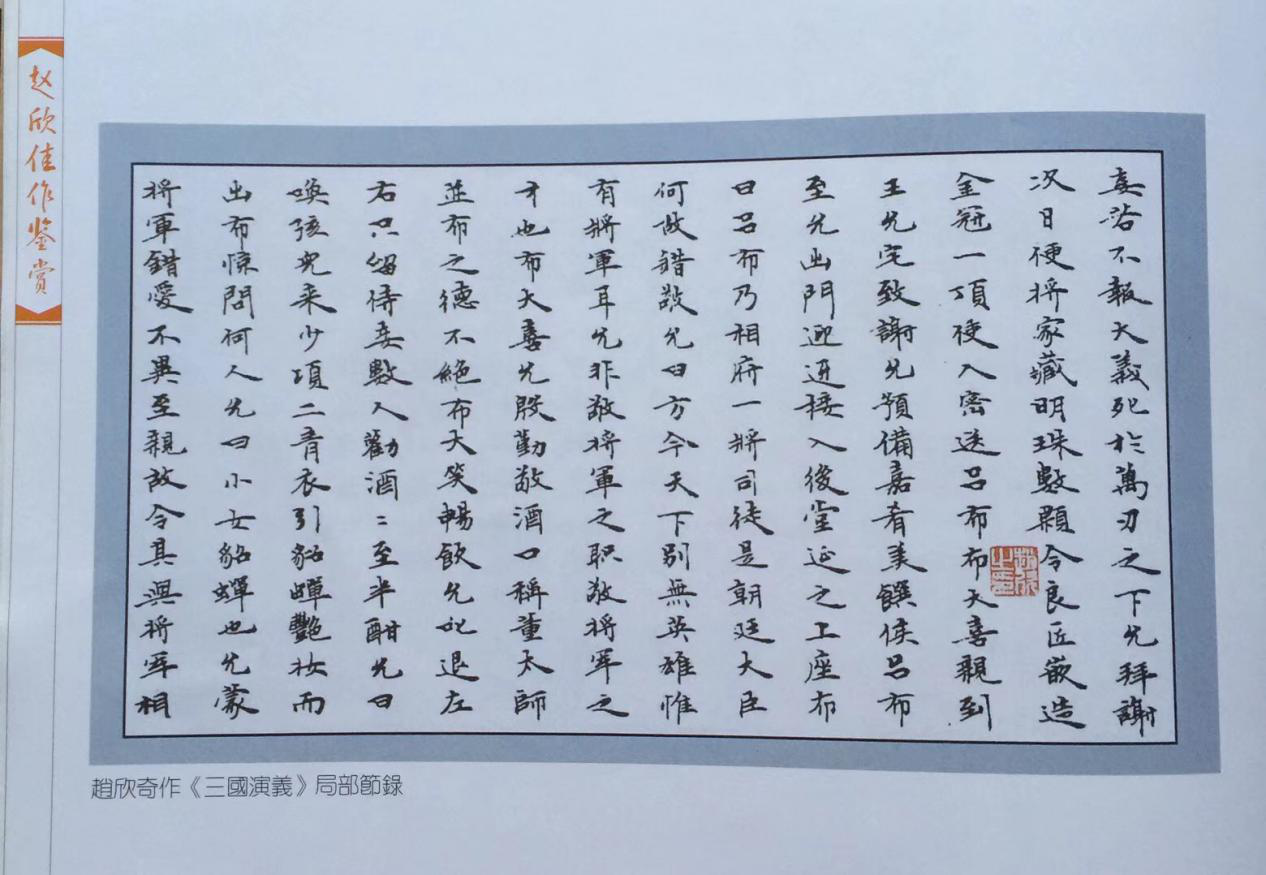 赵欣佳作鉴赏
妾若不報大義死於萬刃之下允拜謝
次日便将家藏明珠數顆令良匠嵌造
金冠一頂使人密送呂布布大喜親到
王允宅致謝允預備嘉肴美饌候呂布
至允出門迎迓接入後堂延之上座布
曰呂布乃相府一將司徒是朝廷大臣
何故錯敬允曰方今天下别無英雄惟
有將軍耳允非敬將軍之职敬将軍之
才也布大喜允殷勤敬酒口稱董太師
並布之德不絕布大笑暢飲允叱退左
右只留侍妾數人勸酒〻至半酣允曰
喚孩兒來少頃二青衣引貂蟬艷妝而
出布惊問何人允曰小女貂蟬也允蒙
将軍錯愛不異至親故令其與将軍相
趙欣奇作《三國演義》局部節錄